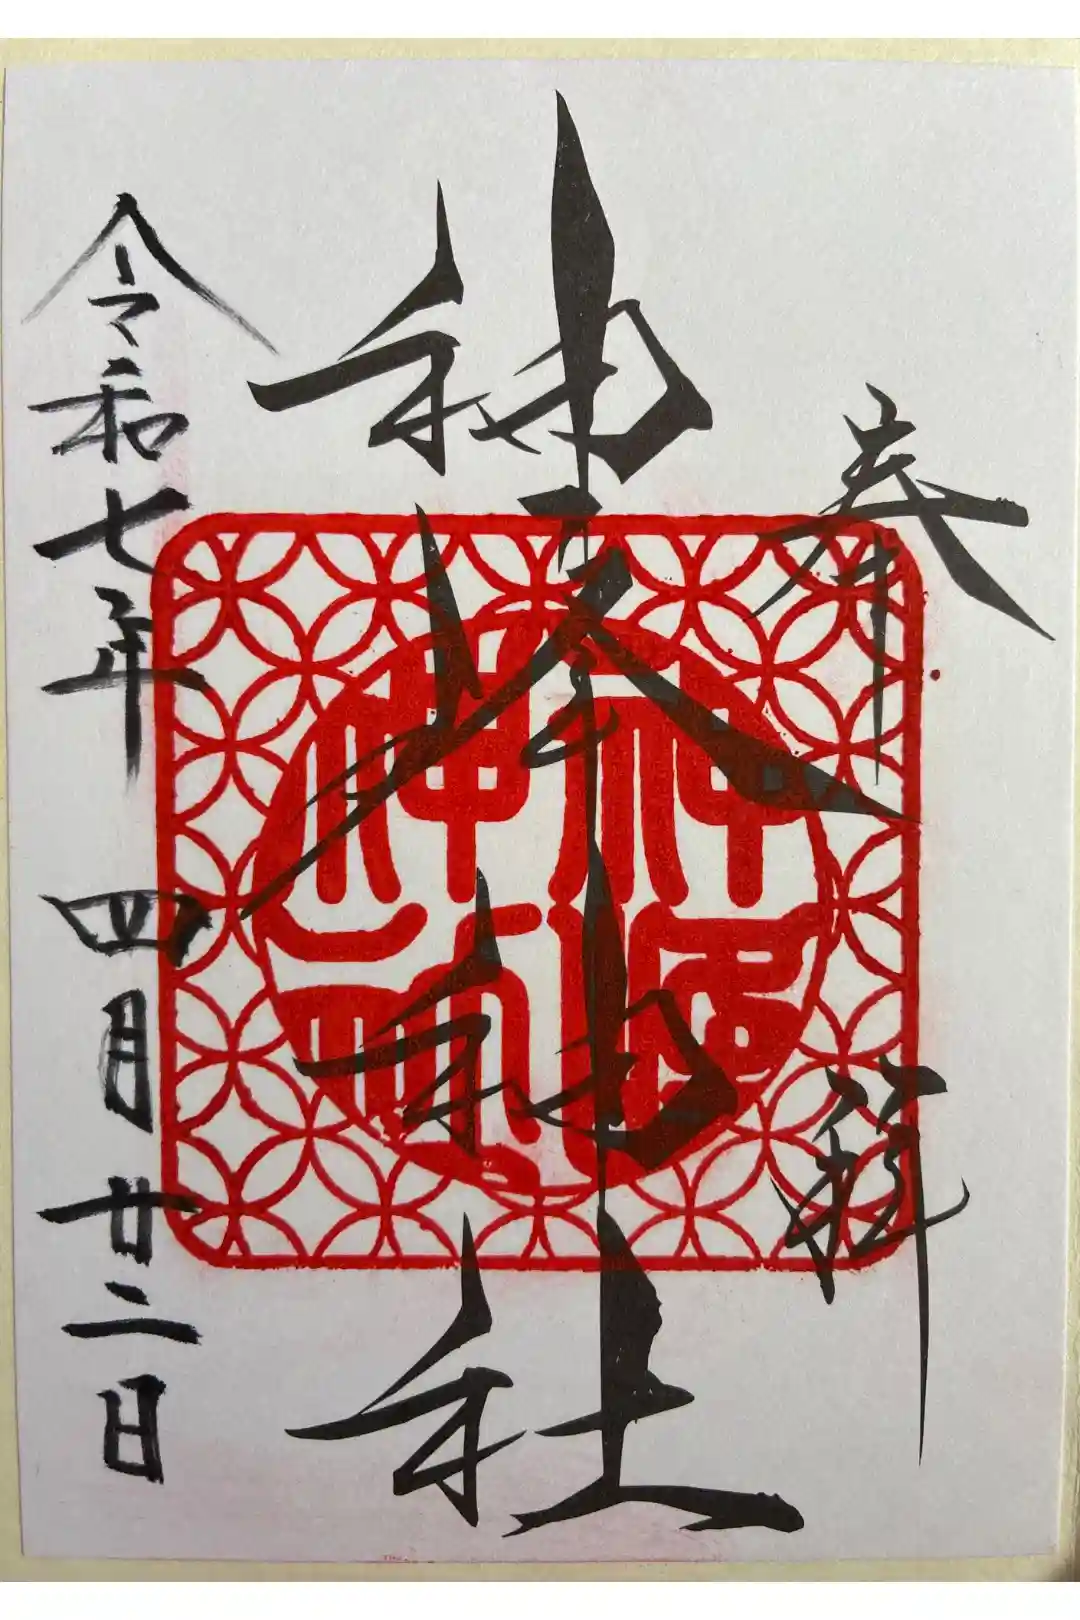 奉拝
神峰神社
令和七年 四月 廿二日